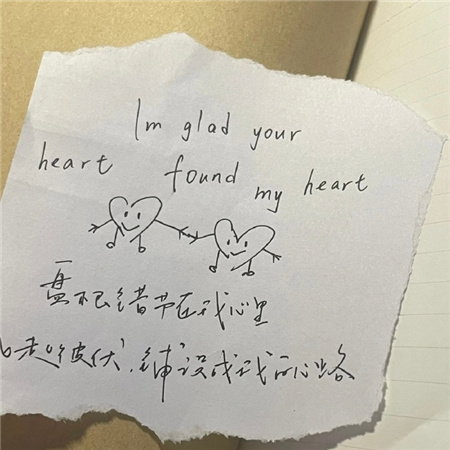 Im glad your
heart found my heart
盘根错节在我心里
此起彼伏,铺设成我的心路